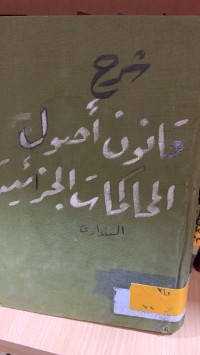 شرح
قانون أصول
المحاكمات الجزئية